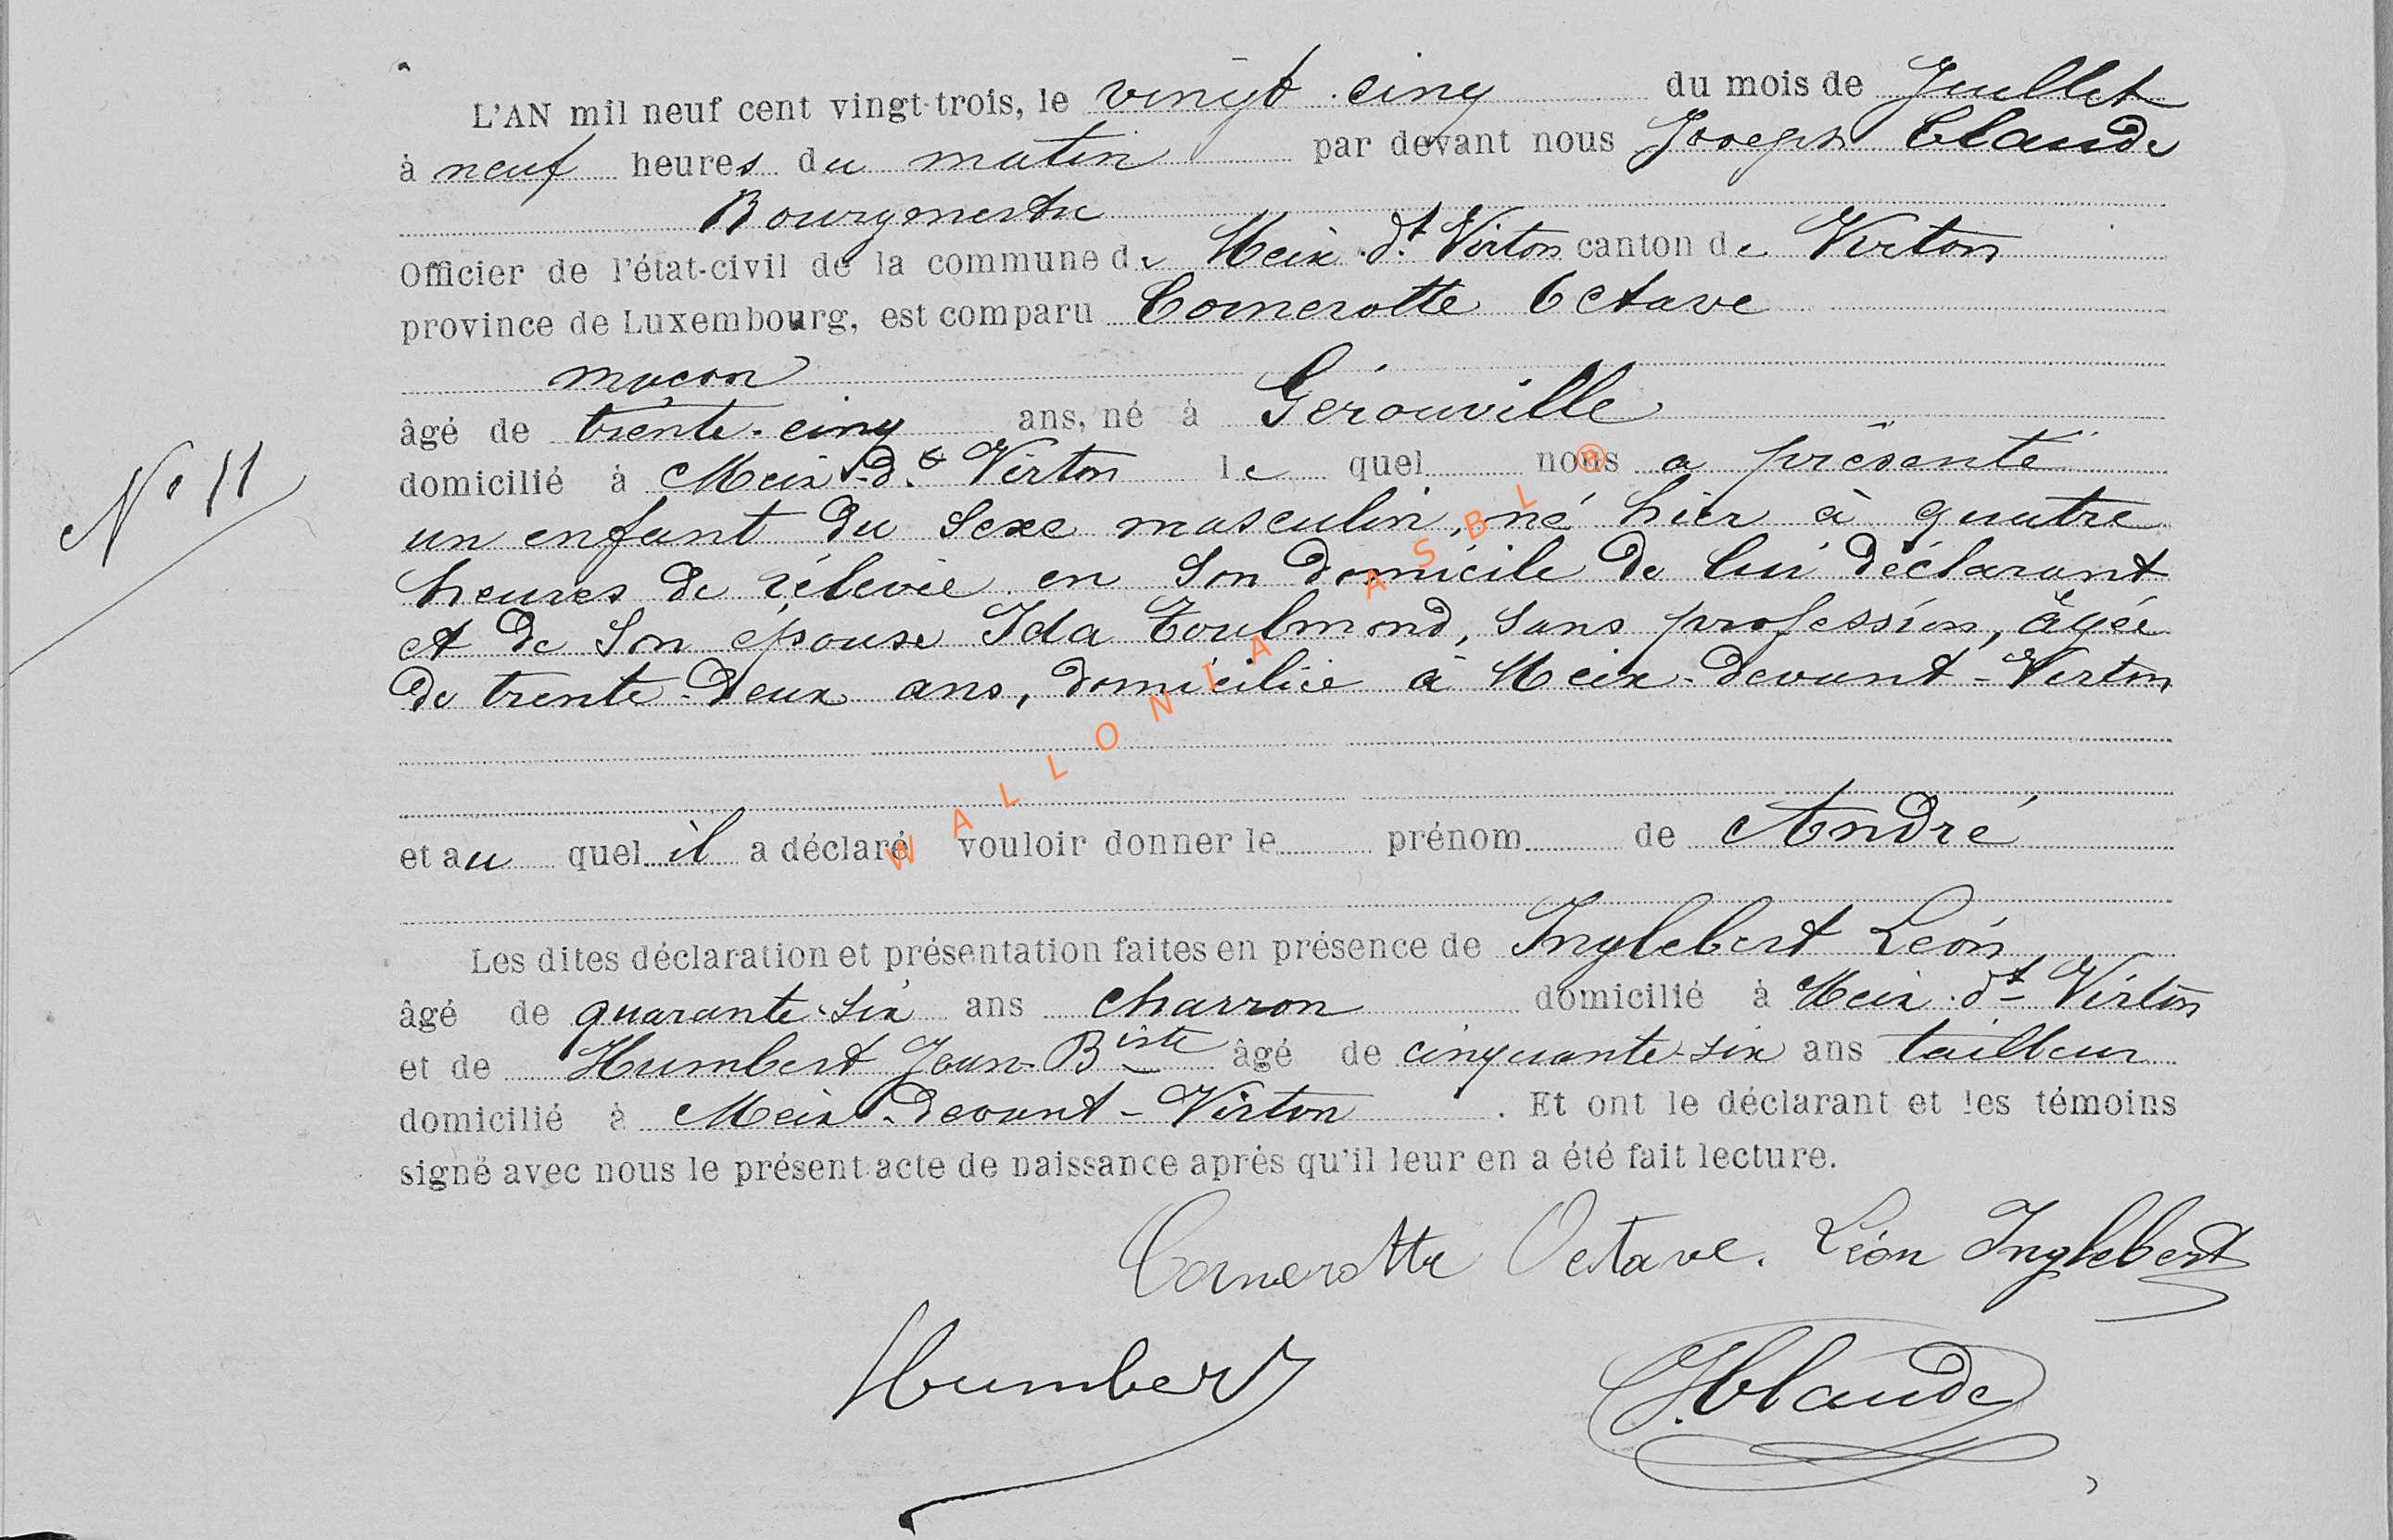 L'AN mil neuf cent vingt-trois, le vingt-cinq du mois de Juillet
à neuf heures du matin par devant nous Joseph Claude
Bourgmestre
Officier de l'état-civil de la commune de Meix-dt-Virton canton de Virton
province de Luxembourg, est comparu Cornerotte Octave
maçon
âgé de trente-cinq ans, né à Gérouville
domicilié à Meix-dt Virton le quel nous a présenté
N° 11
un enfant du sexe masculin, né hier à quatre
heures de rélevée en son domicile de lui déclarant
et de son épouse Ida Toulmond, sans profession, âgée
de trente-deux ans, domiciliée à Meix-devant-Virton
et au quel il a déclaré vouloir donner le prénom de André
Les dites déclaration et présentation faites en présence de Inglebert Léon
âgé de quarante-six ans charron domicilié à Meix-dt-Virton
et de Humbert Jean-Biste âgé de cinquante-six ans tailleur
domicilié à Meix-devant-Virton. Et ont le déclarant et les témoins
signé avec nous le présent acte de naissance après qu'il leur en a été fait lecture.
Cornerotte Octave. Léon Inglebert
Humbert J. Claude
WALLONIA ASBL ®